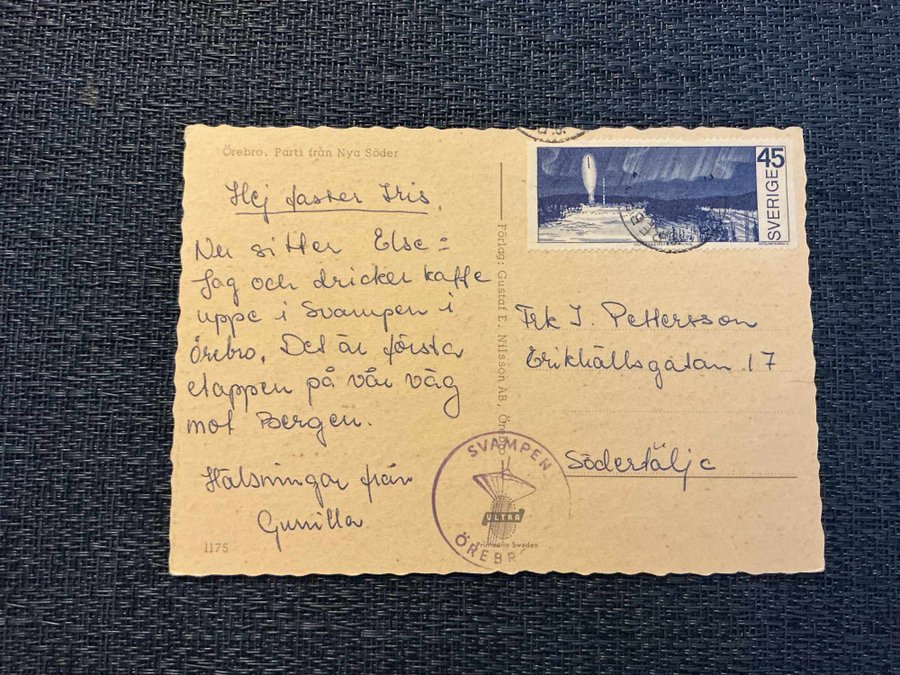 Örebro. Parti från Nya Söder
Hej faster Iris.
Nu sitter Else =
Jag och dricker kaffe
uppe i Svampen i
Örebro. Det är första
etappen på vår väg
mot Bergen.
Hälsningar från
Gunilla
1175
Förlag: Gustaf E. Nilsson AB, Örebro
SVAMPEN
ULTRA
ÖREBR
Printed in Sweden
45
SVERIGE
Frk I. Pettersson
Erikhällsgatan 17
Södertälje